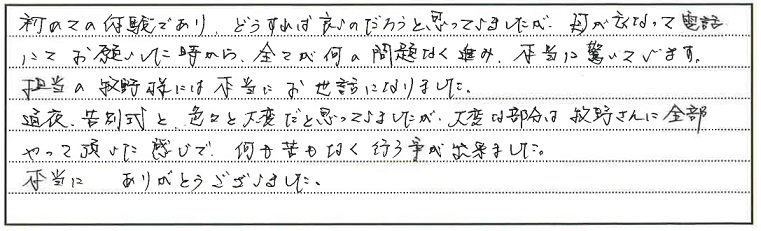 初めての体験であり、どうすれば良いのだろうと思っていましたが、母が亡くなって電話
にてお願いした時から、全てが何の問題なく進み、本当に驚いています。
担当の牧野様には本当にお世話になりました。
通夜、告別式と、色々と大変だと思っていましたが、大変な部分は牧野さんに全部
やって頂いた感じで、何の苦もなく行う事が出来ました。
本当に ありがとうございました。